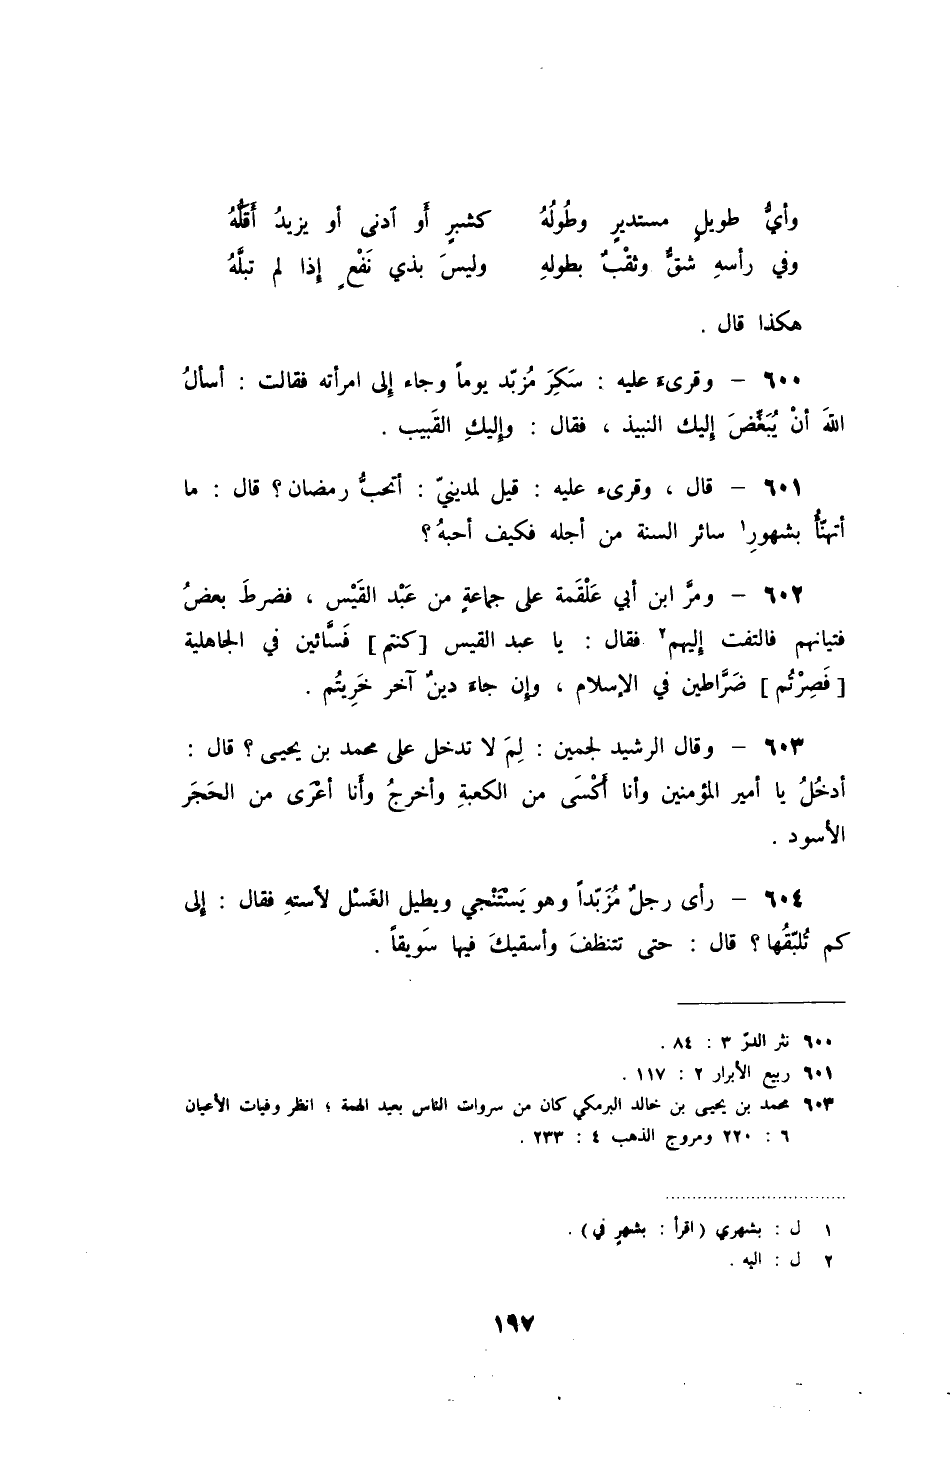 وأيُّ طويلٍ مستديرٍ وطُولُهُ كشبرٍ أَو أدنى أو يزيدُ أَقَلُّهُ
وفي رأسهِ شقٌّ وثقْبٌ بطولهِ وليسَ بذي نَفْعٍ إِذا لم تبلَّهُ
هكذا قال .
٦٠٠ – وقرىءَ عليه : سَكِرَ مُزبّد يوماً وجاء إِلى امرأته فقالت : أسألُ
اللهَ أنْ يُبَغِّضَ إِليك النبيذ ، فقال : وإِليكِ القَبيب .
٦٠١ – قال ، وقرىء عليه : قيل لمدينيّ : أتحبُّ رمضان ؟ قال : ما
أتهنّأُ بشهورِ١ سائر السنة من أجله فكيف أحبهُ ؟
٦٠٢ – ومرَّ ابن أبي عَلْقَمة على جماعةٍ من عَبْد القَيْس ، فضرطَ بعضُ
فتيانهم فالتفت إِليهم٢ فقال : يا عبد القيس [كنتم] فَسَّائين في الجاهلية
[فَصِرْتُم] ضَرَّاطين في الإسلام ، وإن جاءَ دينٌ آخر خَرِيتُم .
٦٠٣ – وقال الرشيد لجمين : لِمَ لا تدخل على محمد بن يحيى ؟ قال :
أدخُلُ يا أمير المؤمنين وأنا أَكْسَى من الكعبةِ وأخرجُ وأَنا أعْرَى من الحَجَر
الأسود .
٦٠٤ – رأى رجلٌ مُزَبّداً وهو يَسْتَنْجي ويطيل الغَسْل لأستهِ فقال : إِلى
كم تُلبّقُها ؟ قال : حتى تتنظفَ وأسقيكَ فيها سَويقاً .
٦٠٠ نثر الدرّ ٣ : ٨٤ .
٦٠١ ربيع الأبرار ٢ : ١١٧ .
٦٠٣ محمد بن يحيى بن خالد البرمكي كان من سروات الناس بعيد الهمة ؛ انظر وفيات الأعيان
٦ : ٢٢٠ ومروج الذهب ٤ : ٢٣٣ .
١ ل : بشهري (اقرأ : بشهرٍ في) .
٢ ل : اليه .
١٩٧